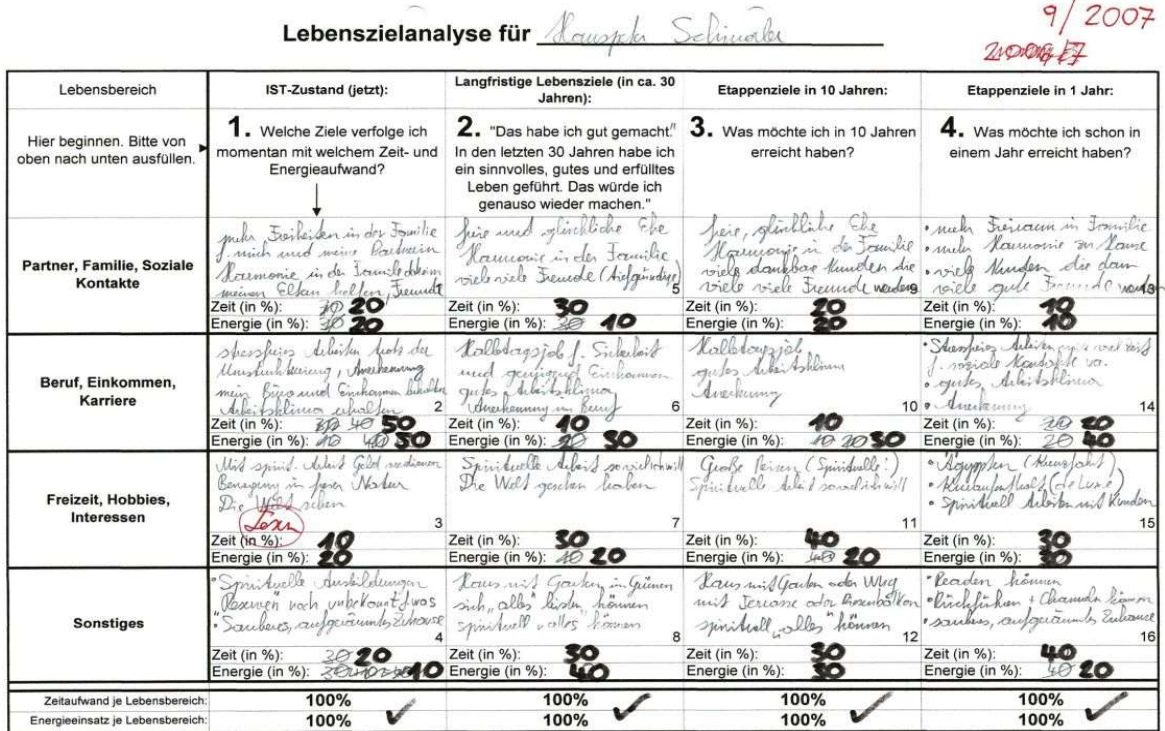 9/2007
Lebenszielanalyse für
Lebensbereich
IST-Zustand (jetzt):
Langfristige Lebensziele (in ca. 30 Jahren):
Etappenziele in 10 Jahren:
Etappenziele in 1 Jahr:
Hier beginnen. Bitte von
oben nach unten ausfüllen.
1. Welche Ziele verfolge ich
momentan mit welchem Zeit- und
Energieaufwand?
2. "Das habe ich gut gemacht."
In den letzten 30 Jahren habe ich
ein sinnvolles, gutes und erfülltes
Leben geführt. Das würde ich
genauso wieder machen."
3. Was möchte ich in 10 Jahren
erreicht haben?
4. Was möchte ich schon in
einem Jahr erreicht haben?
Partner, Familie, Soziale
Kontakte
mehr Freiheiten in der Familie
f. mich und meine Partnerin
Harmonie in der Familie daheim
meinen Eltern helfen, Freunde
1
Zeit (in %): 20
Energie (in %): 20
freie und glückliche Ehe
Harmonie in der Familie
viele viele Freunde (tiefgründige)
5
Zeit (in %): 30
Energie (in %): 10
freie, glückliche Ehe
Harmonie in der Familie
viele dankbare Kunden die
viele viele Freunde werden
9
Zeit (in %): 20
Energie (in %): 20
• mehr Freiraum in Familie
• mehr Harmonie zu Hause
• viele Kunden, die dann
viele gute Freunde werden
13
Zeit (in %): 10
Energie (in %): 10
Beruf, Einkommen,
Karriere
stressfreies Arbeiten trotz der
Umstrukturierung, Anerkennung
mein Büro und Einkommen behalten
Arbeitsklima erhalten
2
Zeit (in %): 50
Energie (in %): 50
Halbtagsjob f. Sicherheit
und genügend Einkommen
gutes Arbeitsklima
Anerkennung im Beruf
6
Zeit (in %): 10
Energie (in %): 30
Halbtagsjob
gutes Arbeitsklima
Anerkennung
10
Zeit (in %): 10
Energie (in %): 30
• Stressfreies Arbeiten viel Zeit
f. soziale Kontakte
• gutes Arbeitsklima
• Anerkennung
14
Zeit (in %): 20
Energie (in %): 40
Freizeit, Hobbies,
Interessen
Mit spirit. Arbeit Geld verdienen
Bewegung in freier Natur
Die Welt sehen
Lesen
3
Zeit (in %): 10
Energie (in %): 20
Spirituelle Arbeit soviel ich will
Die Welt gesehen haben
7
Zeit (in %): 30
Energie (in %): 20
Große Reisen (Spirituelle!)
Spirituelle Arbeit soviel ich will
11
Zeit (in %): 40
Energie (in %): 20
• Ägypten (Kreuzfahrt)
• Kuraufenthalt (de Luxe)
• Spirituell Arbeiten mit Kunden
15
Zeit (in %): 30
Energie (in %): 30
Sonstiges
• Spirituelle Ausbildungen
"Reserven" noch unbekannt f. was
• Sauberes, aufgeräumtes Zuhause
4
Zeit (in %): 20
Energie (in %): 10
Haus mit Garten im Grünen
sich "alles" leisten können
spirituell "alles" können
8
Zeit (in %): 30
Energie (in %): 40
Haus mit Garten oder Whg
mit Terrasse oder Riesenbalkon
spirituell "alles" können
12
Zeit (in %): 30
Energie (in %): 30
• Readen können
• Rückführen + Channeln können
• sauberes, aufgeräumtes Zuhause
16
Zeit (in %): 40
Energie (in %): 20
Zeitaufwand je Lebensbereich: 100% 100% 100% 100%
Energieeinsatz je Lebensbereich: 100% 100% 100% 100%